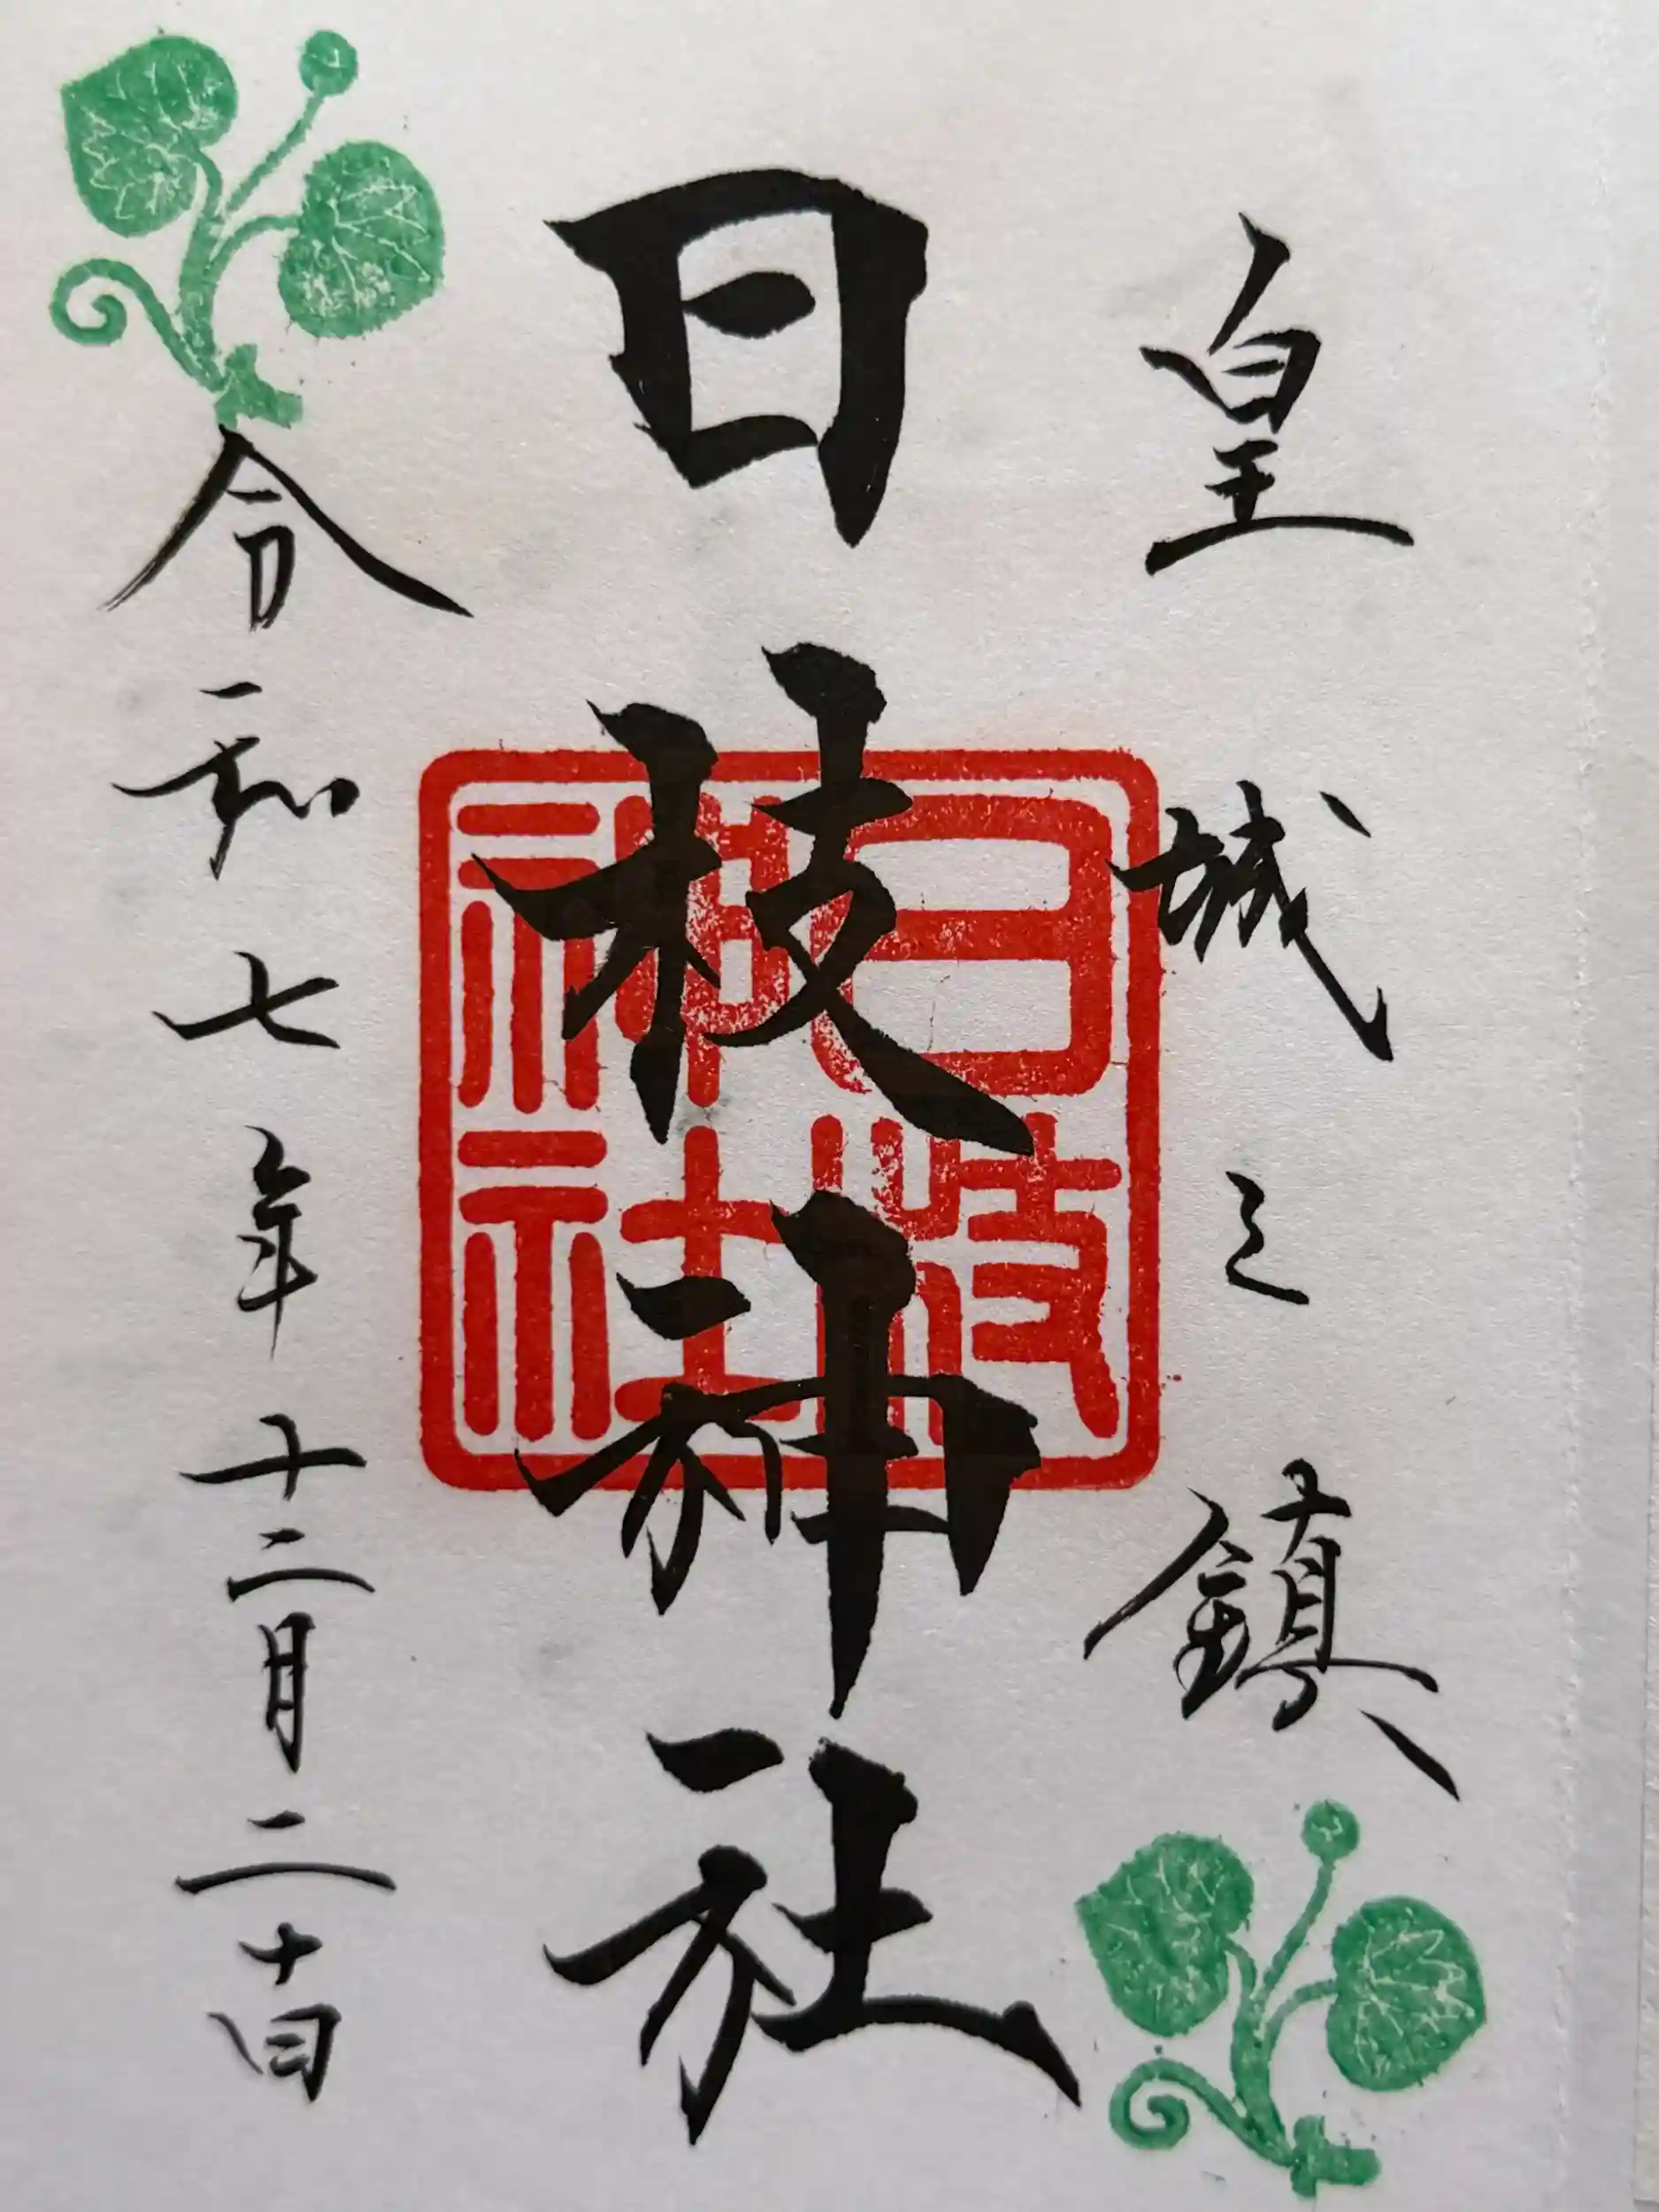 皇城之鎮
日枝神社
令和七年十二月二十日
日枝
神社